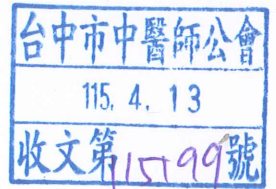 台中市中醫師公會
115. 4. 13
收文第11599號